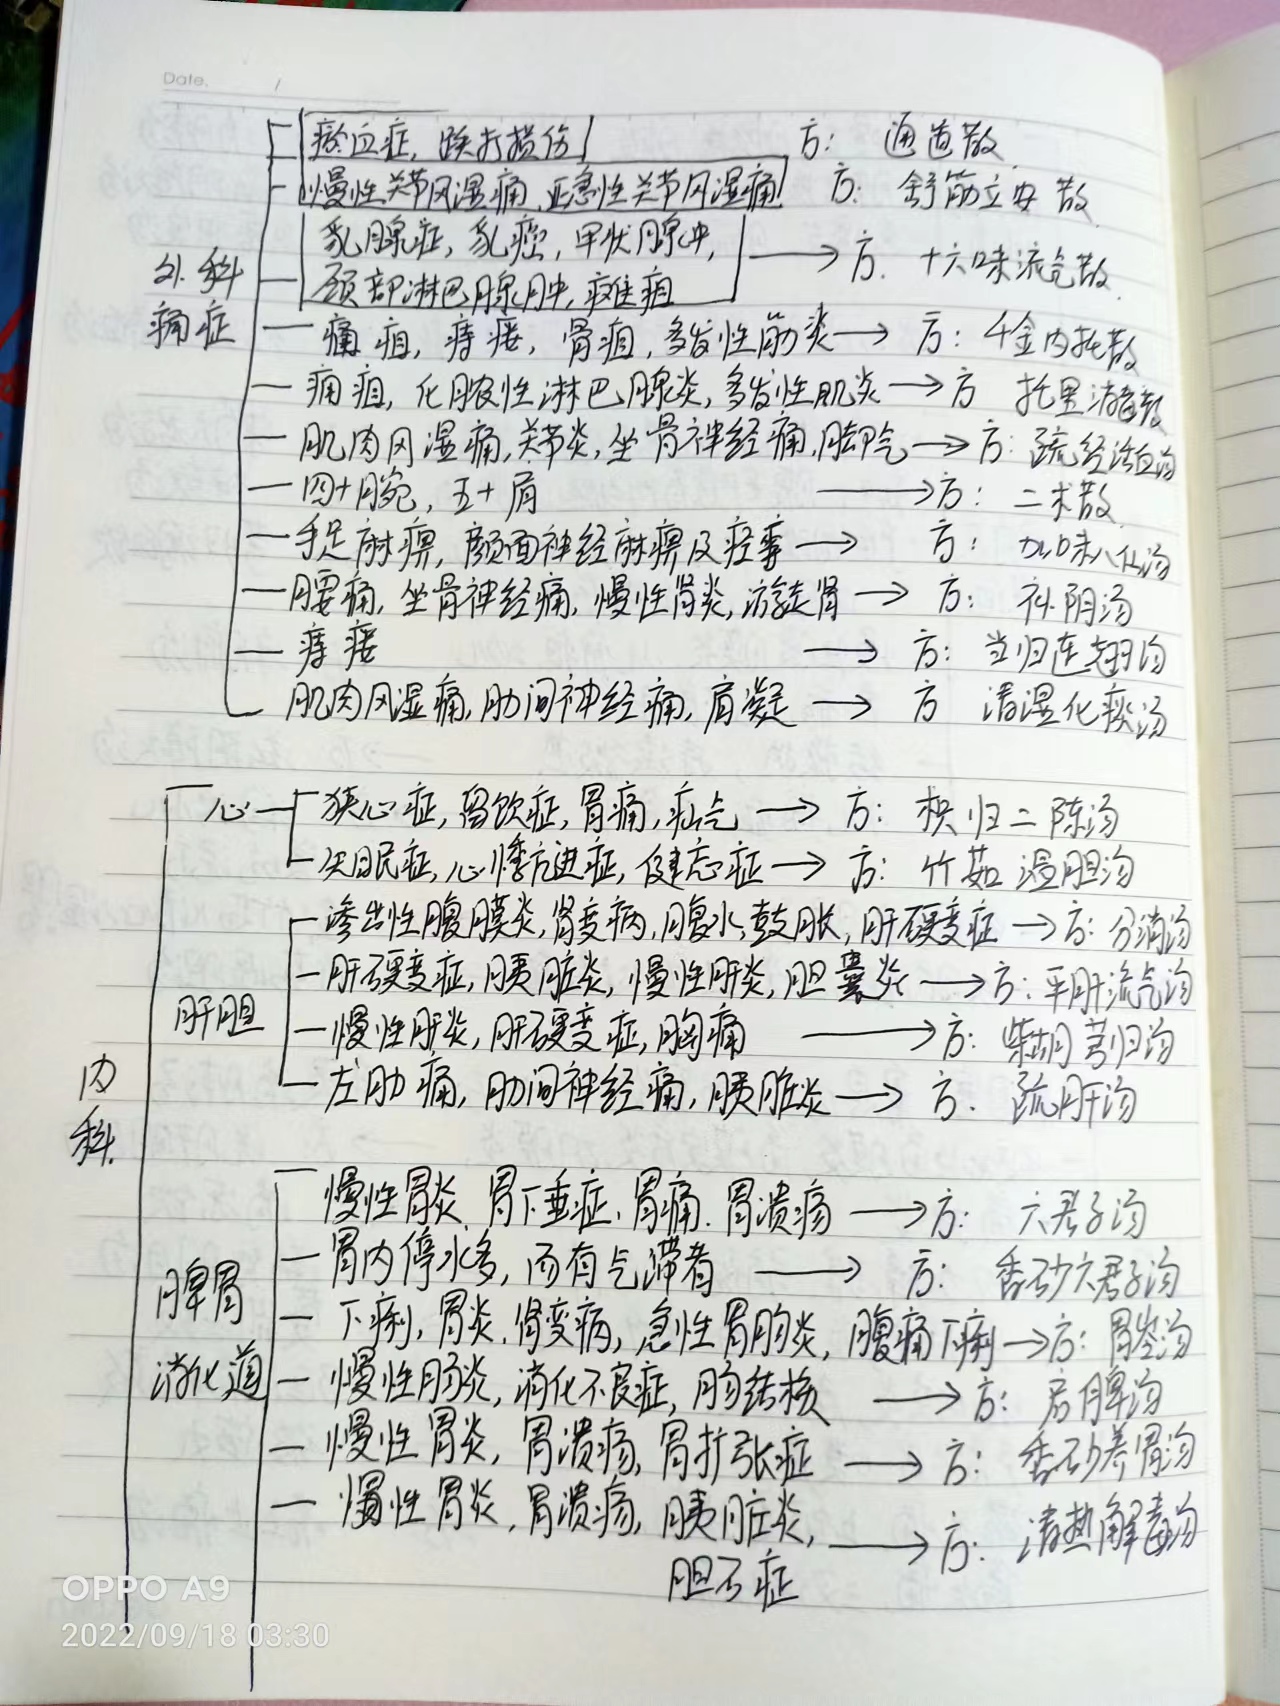 Date.
瘀血症, 跌打损伤 方: 通道散
慢性关节风湿痛, 亚急性关节风湿痛 方: 舒筋立安散
外科
痛症
乳腺症, 乳癌, 甲状腺肿, → 方. 十六味流气散.
颈部淋巴腺肿, 瘫疽
痈疽, 痔瘘, 骨疽, 多发性筋炎 → 方: 千金内托散
痈疽, 化脓性淋巴腺炎, 多发性肌炎 → 方 托里消毒散
肌肉风湿痛, 关节炎, 坐骨神经痛, 脚气 → 方: 疏经活血汤
四十腕, 五十肩 → 方: 二术散
手足麻痹, 颜面神经麻痹及痉挛 → 方: 加味八仙汤
腰痛, 坐骨神经痛, 慢性肾炎, 游走肾 → 方: 补阴汤
痔瘘 → 方: 当归连翘汤
肌肉风湿痛, 肋间神经痛, 肩凝 → 方 清湿化痰汤
内科
心
狭心症, 留饮症, 胃痛, 疝气 → 方: 枳归二陈汤
失眠症, 心悸亢进症, 健忘症 → 方: 竹茹温胆汤
肝胆
渗出性腹膜炎, 肾变病, 腹水, 鼓胀, 肝硬变症 → 方: 分消汤
肝硬变症, 胰脏炎, 慢性肝炎, 胆囊炎 → 方: 平肝流气汤
慢性肝炎, 肝硬变症, 胸痛 → 方: 柴胡芎归汤
左肋痛, 肋间神经痛, 胰脏炎 → 方. 疏肝汤
脾胃
消化道
慢性胃炎, 胃下垂症, 胃痛. 胃溃疡 → 方: 六君子汤
胃内停水多, 而有气滞者 → 方: 香砂六君子汤
下痢, 胃炎, 肾变病, 急性胃肠炎, 腹痛下痢 → 方: 胃苓汤
慢性肠炎, 消化不良症, 肠结核 → 方: 启脾汤
慢性胃炎, 胃溃疡, 胃扩张症 → 方: 香砂养胃汤
慢性胃炎, 胃溃疡, 胰脏炎, → 方: 清热解毒汤
胆石症
OPPO A9
2022/09/18 03:30